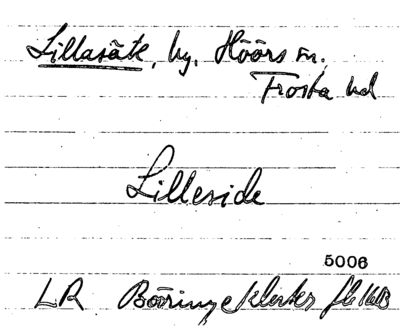 Lillasäte, by. Höörs sn.
Frosta hd
Lilleside
5006
LR Bööringe Kloster